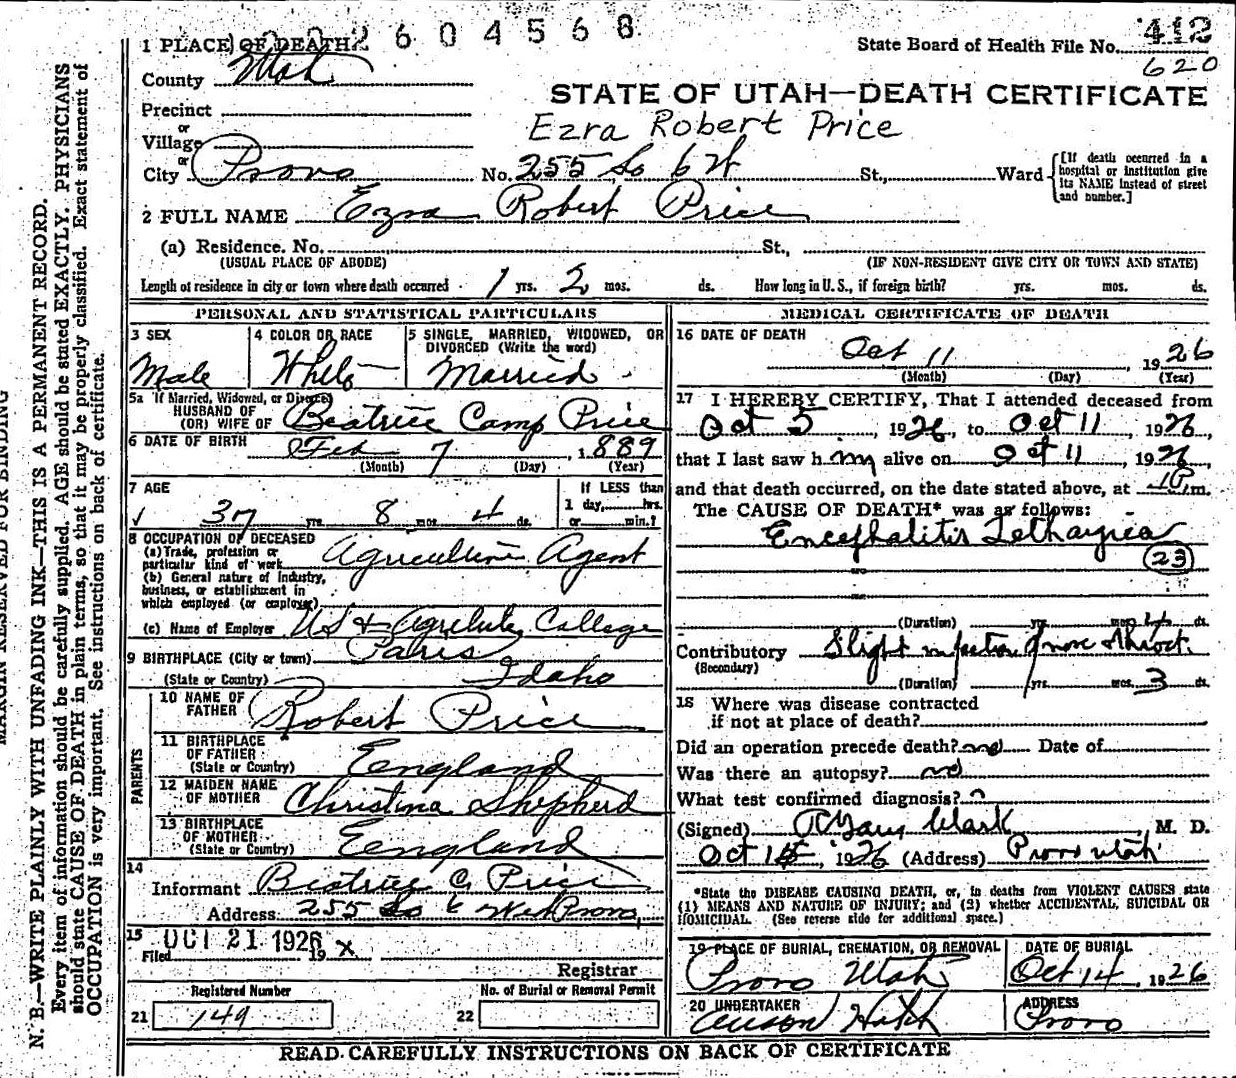 2604568
1 PLACE OF DEATH
State Board of Health File No. 412
620
County Utah
STATE OF UTAH—DEATH CERTIFICATE
Precinct
Ezra Robert Price
or
Village
or
City Provo No. 255 So 6 W St., Ward
[If death occurred in a hospital or institution give its NAME instead of street and number.]
2 FULL NAME Ezra Robert Price
(a) Residence. No. St.,
(USUAL PLACE OF ABODE) (IF NON-RESIDENT GIVE CITY OR TOWN AND STATE)
Length of residence in city or town where death occurred 1 yrs. 2 mos. ds. How long in U. S., if foreign birth? yrs. mos. ds.
PERSONAL AND STATISTICAL PARTICULARS
3 SEX
Male
4 COLOR OR RACE
White
5 SINGLE, MARRIED, WIDOWED, OR
DIVORCED (Write the word)
Married
5a If Married, Widowed, or Divorced
HUSBAND OF
(OR) WIFE OF Beatrice Camp Price
6 DATE OF BIRTH Feb 7, 1889
(Month) (Day) (Year)
7 AGE
37 yrs. 8 mos. 4 ds.
If LESS than
1 day, hrs.
or min.?
8 OCCUPATION OF DECEASED
(a) Trade, profession or
particular kind of work Agriculture Agent
(b) General nature of industry,
business, or establishment in
which employed (or employer)
(c) Name of Employer College
9 BIRTHPLACE (City or town) Paris
(State or Country) Idaho
PARENTS
10 NAME OF
FATHER Robert Price
11 BIRTHPLACE
OF FATHER England
(State or Country)
12 MAIDEN NAME
OF MOTHER Christina Shepherd
13 BIRTHPLACE
OF MOTHER England
(State or Country)
14
Informant Beatrice C. Price
Address: 255 So 6 West Provo
15 OCT 21 1926
Filed 19 x
Registrar
Registered Number
21 149
No. of Burial or Removal Permit
22
MEDICAL CERTIFICATE OF DEATH
16 DATE OF DEATH
Oct 11, 1926
(Month) (Day) (Year)
17 I HEREBY CERTIFY, That I attended deceased from
Oct 5, 1926, to Oct 11, 1926,
that I last saw him alive on Oct 11, 1926
and that death occurred, on the date stated above, at 10 P.m.
The CAUSE OF DEATH* was as follows:
Encephalitis Lethargica
23
(Duration) yrs. mos. ds.
Contributory Slight infection of nose & throat.
(Secondary)
(Duration) yrs. mos. 3 ds.
18 Where was disease contracted
if not at place of death?
Did an operation precede death? no Date of
Was there an autopsy? no
What test confirmed diagnosis?
(Signed) Clark, M. D.
Oct 15, 1926 (Address) Provo Utah
*State the DISEASE CAUSING DEATH, or, in deaths from VIOLENT CAUSES state
(1) MEANS AND NATURE OF INJURY; and (2) whether ACCIDENTAL, SUICIDAL OR
HOMICIDAL. (See reverse side for additional space.)
19 PLACE OF BURIAL, CREMATION, OR REMOVAL
Provo Utah
DATE OF BURIAL
Oct 14, 1926
20 UNDERTAKER
Hatch
ADDRESS
Provo
READ CAREFULLY INSTRUCTIONS ON BACK OF CERTIFICATE
MARGIN RESERVED FOR BINDING
N. B.—WRITE PLAINLY WITH UNFADING INK—THIS IS A PERMANENT RECORD.
Every item of information should be carefully supplied. AGE should be stated EXACTLY. PHYSICIANS
should state CAUSE OF DEATH in plain terms, so that it may be properly classified. Exact statement of
OCCUPATION is very important. See instructions on back of certificate.